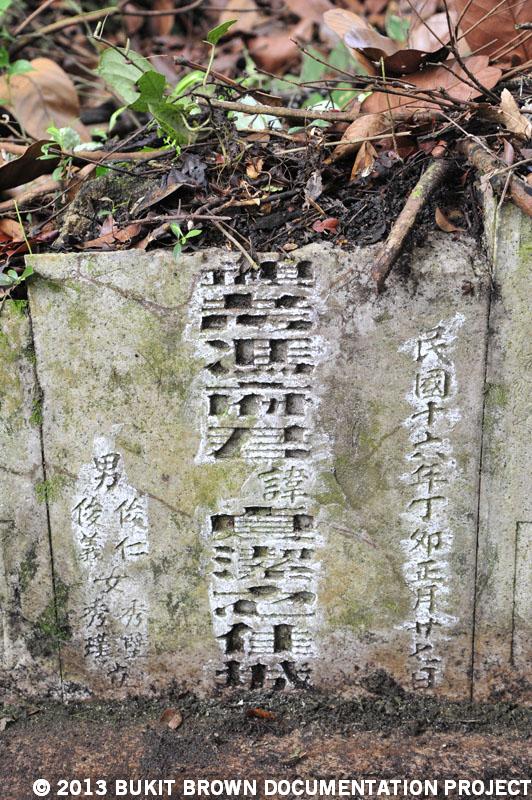 民國十六年丁卯正月廿七日
顯考馮府君諱之佳城
男
俊仁
俊義
女
秀
秀瑾
立
© 2013 BUKIT BROWN DOCUMENTATION PROJECT